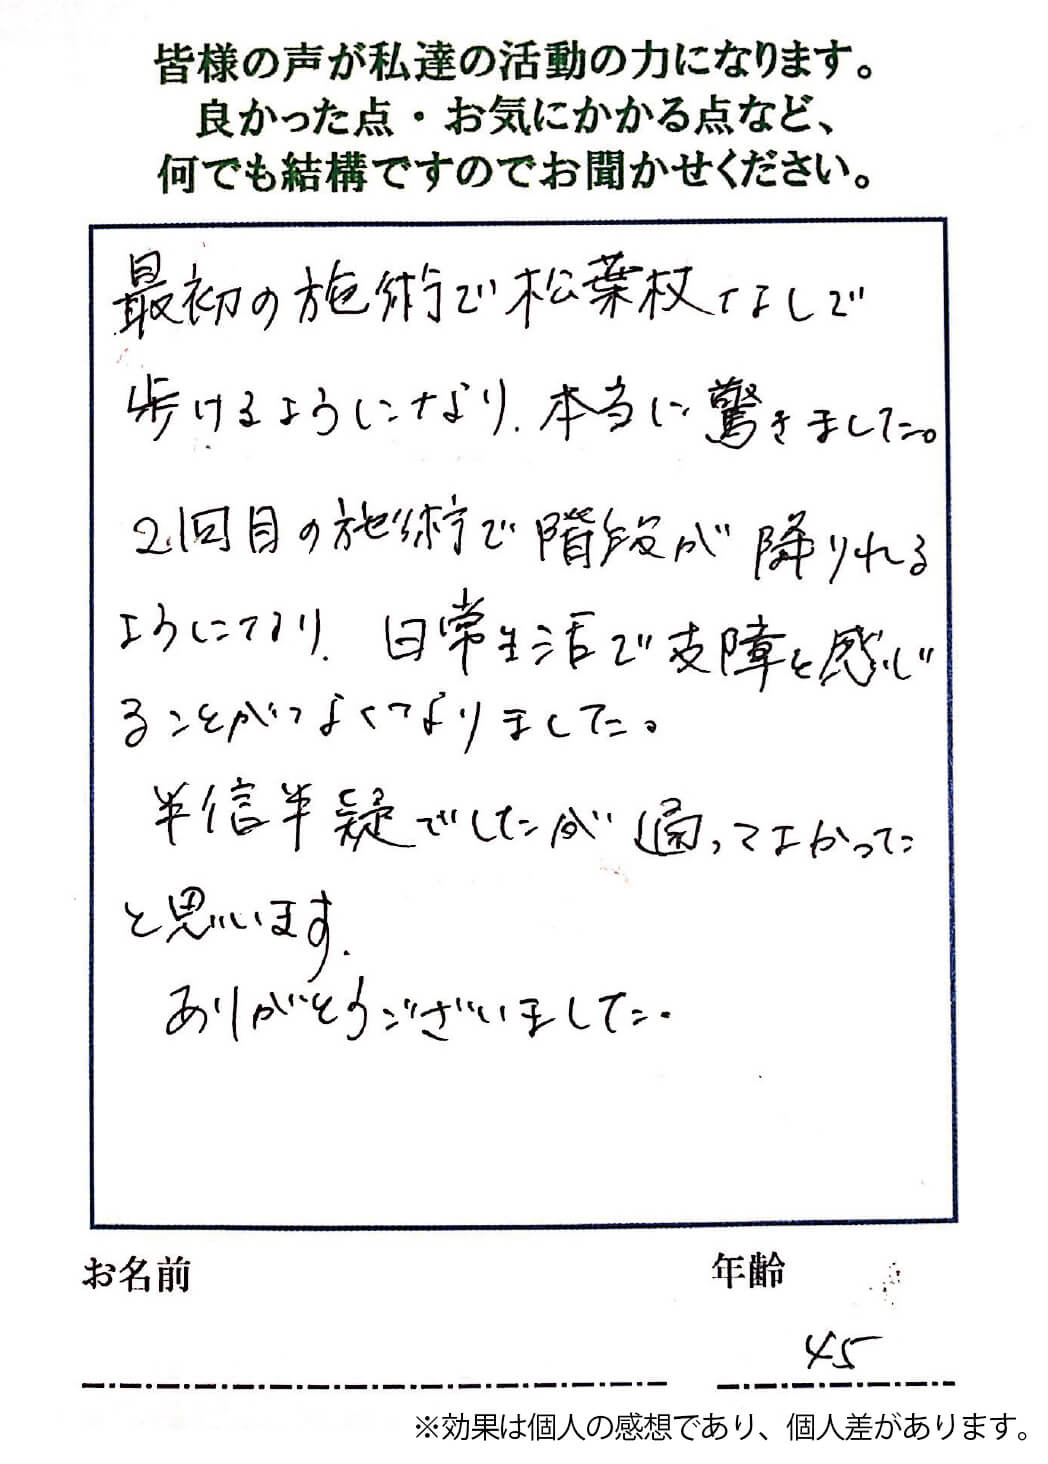 皆様の声が私達の活動の力になります。
良かった点・お気にかかる点など、
何でも結構ですのでお聞かせください。
最初の施術で松葉杖なしで
歩けるようになり、本当に驚きました。
2回目の施術で階段が降りれる
ようになり、日常生活で支障を感じ
ることがなくなりました。
半信半疑でしたが通ってよかった
と思います。
ありがとうございました。
お名前
年齢
45
※効果は個人の感想であり、個人差があります。